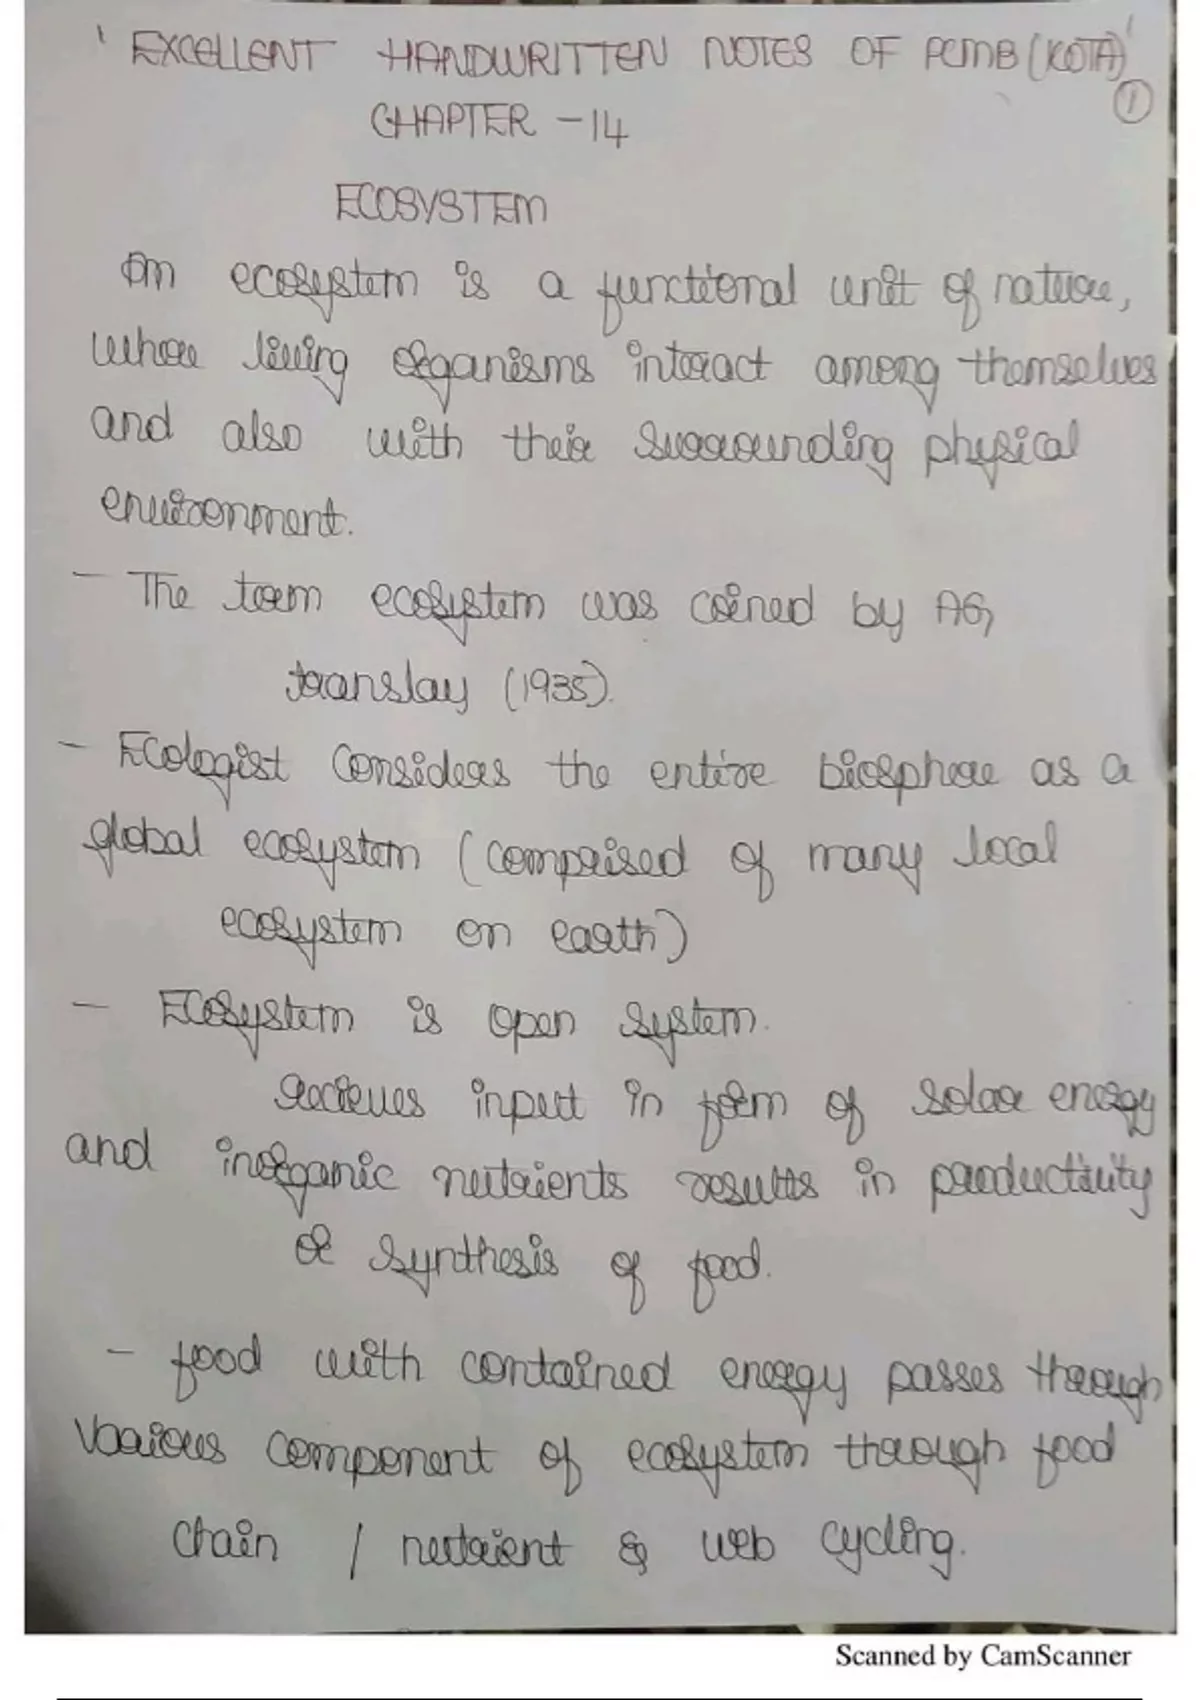 ' EXCELLENT HANDWRITTEN NOTES OF PCMB (KOTA)'
1
CHAPTER - 14
ECOSYSTEM
An ecosystem is a functional unit of nature,
where living organisms interact among themselves
and also with their surrounding physical
environment.
- The term ecosystem was coined by AG,
translay (1935).
- Ecologist Considers the entire biosphere as a
global ecosystem (comprised of many local
ecosystem on earth)
- Ecosystem is open system.
recieves input in form of solar energy
and inorganic nutrients results in productivity
or synthesis of food.
- food with contained energy passes through
Various component of ecosystem through food
chain / nutrient & web cycling.
Scanned by CamScanner